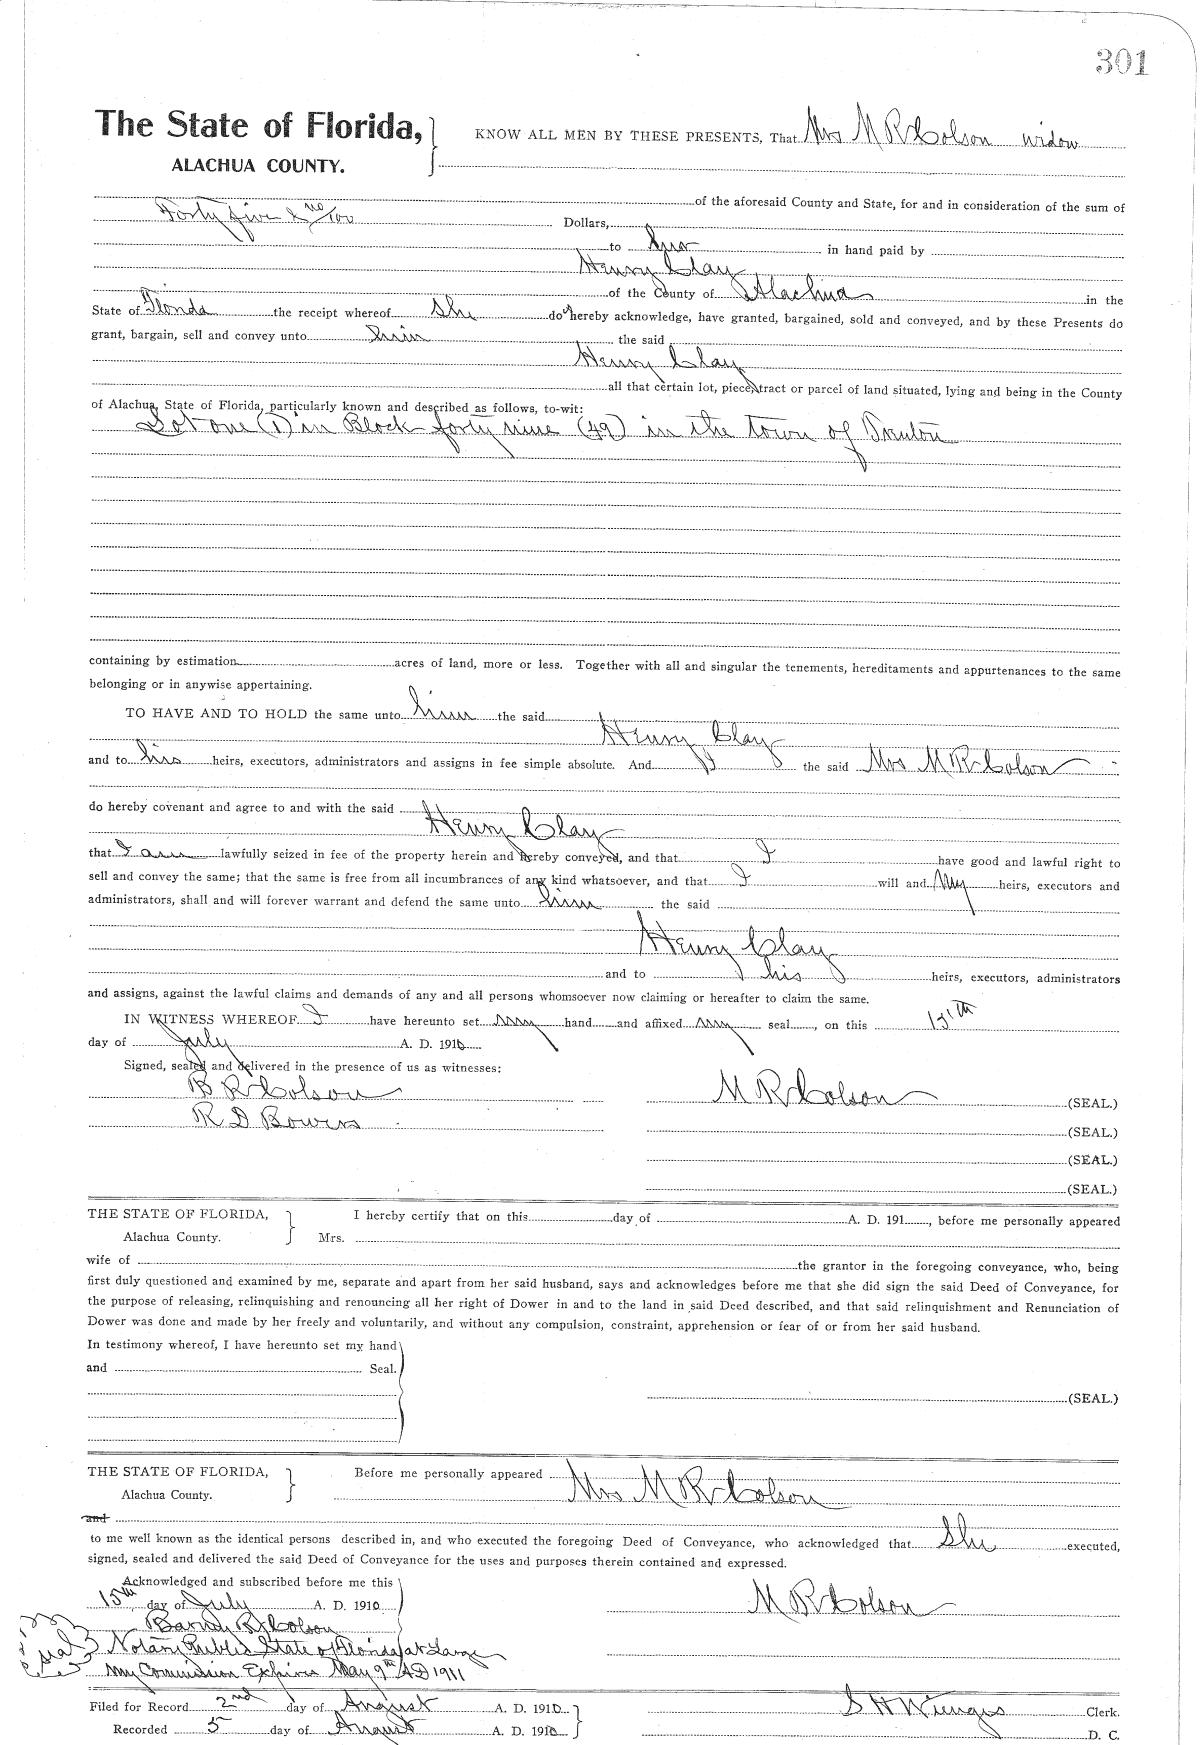 301
The State of Florida,
ALACHUA COUNTY.
KNOW ALL MEN BY THESE PRESENTS, That Mrs M R Colson widow
of the aforesaid County and State, for and in consideration of the sum of
Forty five & no/100 Dollars,
to her in hand paid by
Henry Clay
of the County of Alachua in the
State of Florida the receipt whereof She does hereby acknowledge, have granted, bargained, sold and conveyed, and by these Presents do
grant, bargain, sell and convey unto him the said
Henry Clay
all that certain lot, piece, tract or parcel of land situated, lying and being in the County
of Alachua, State of Florida, particularly known and described as follows, to-wit:
Lot one (1) in Block forty nine (49) in the town of
containing by estimation acres of land, more or less. Together with all and singular the tenements, hereditaments and appurtenances to the same
belonging or in anywise appertaining.
TO HAVE AND TO HOLD the same unto him the said
Henry Clay
and to his heirs, executors, administrators and assigns in fee simple absolute. And I the said Mrs M R Colson
do hereby covenant and agree to and with the said
Henry Clay
that I am lawfully seized in fee of the property herein and hereby conveyed, and that I have good and lawful right to
sell and convey the same; that the same is free from all incumbrances of any kind whatsoever, and that I will and My heirs, executors and
administrators, shall and will forever warrant and defend the same unto him the said
Henry Clay
and to his heirs, executors, administrators
and assigns, against the lawful claims and demands of any and all persons whomsoever now claiming or hereafter to claim the same.
IN WITNESS WHEREOF I have hereunto set my hand and affixed my seal, on this 15th
day of July A. D. 1910
Signed, sealed and delivered in the presence of us as witnesses:
B R Colson
M R Colson (SEAL.)
R D Bowers
(SEAL.)
(SEAL.)
(SEAL.)
THE STATE OF FLORIDA,
Alachua County.
I hereby certify that on this day of A. D. 191, before me personally appeared
Mrs.
wife of the grantor in the foregoing conveyance, who, being
first duly questioned and examined by me, separate and apart from her said husband, says and acknowledges before me that she did sign the said Deed of Conveyance, for
the purpose of releasing, relinquishing and renouncing all her right of Dower in and to the land in said Deed described, and that said relinquishment and Renunciation of
Dower was done and made by her freely and voluntarily, and without any compulsion, constraint, apprehension or fear of or from her said husband.
In testimony whereof, I have hereunto set my hand
and Seal.
(SEAL.)
THE STATE OF FLORIDA,
Alachua County.
Before me personally appeared
Mrs M R Colson
and
to me well known as the identical persons described in, and who executed the foregoing Deed of Conveyance, who acknowledged that She executed,
signed, sealed and delivered the said Deed of Conveyance for the uses and purposes therein contained and expressed.
Acknowledged and subscribed before me this
15th day of July A. D. 1910
M R Colson
R Colson
seal
Notary Public State of Florida at Large
My Commission Expires May 9th AD 1911
Filed for Record 2nd day of August A. D. 1910
S H Wienges Clerk.
Recorded 5 day of August A. D. 1910
D. C.